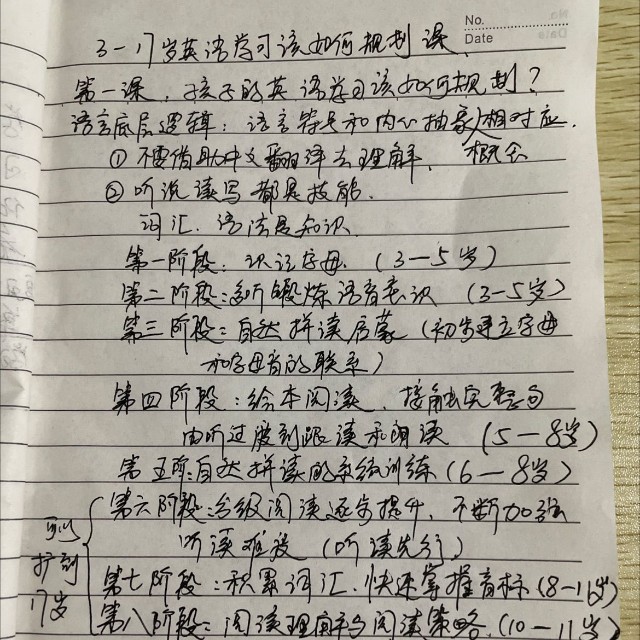 No.
Date
3-17岁英语学习该如何规划 课
第一课. 孩子的英语学习该如何规划?
语言底层逻辑: 语言符号和内心抽象概念相对应.
① 不要借助中文翻译去理解.
② 听说读写都是技能.
词汇. 语法是知识.
第一阶段: 认识字母. (3-5岁)
第二阶段: 多听锻炼语音意识 (3-5岁)
第三阶段: 自然拼读启蒙 (初步建立字母
和字母音的联系)
第四阶段: 绘本阅读, 接触完整句
由听过渡到跟读和朗读 (5-8岁)
第五阶: 自然拼读的系统训练 (6-8岁)
第六阶段: 分级阅读逐步提升, 不断加强
听读难度 (听读先行)
第七阶段: 积累词汇. 快速掌握音标 (8-11岁)
第八阶段: 阅读理解与阅读策略. (10-11岁)
扩到
17岁